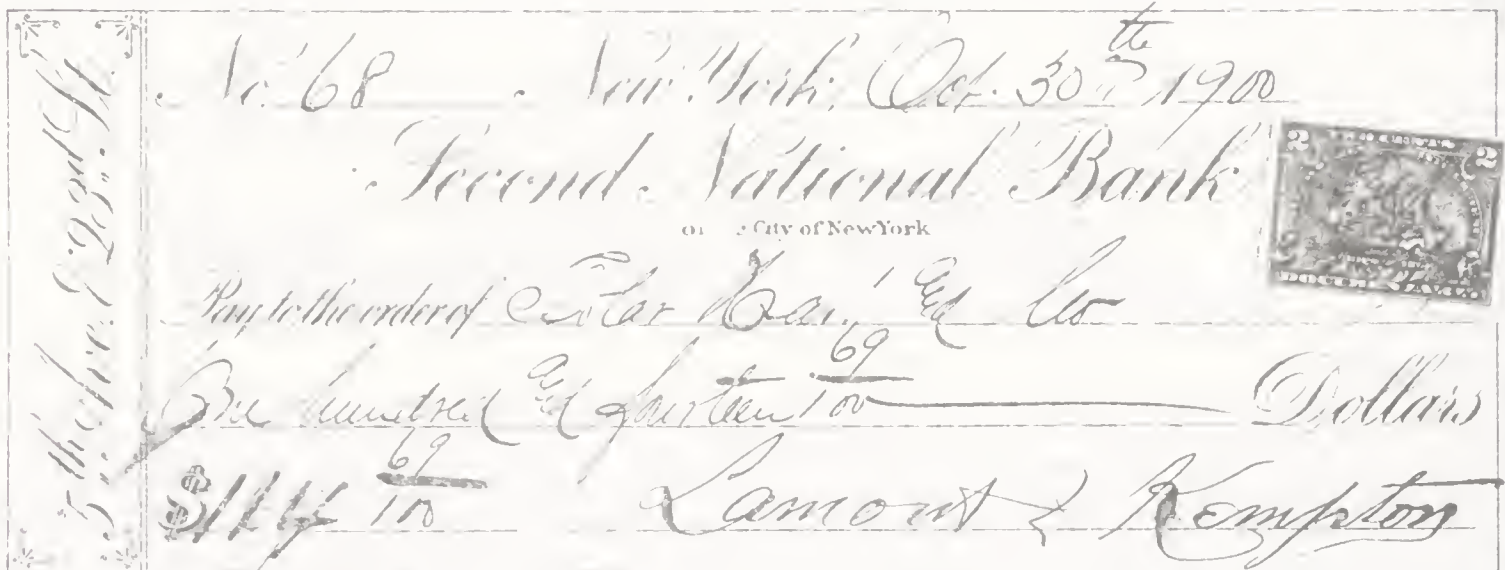 5th Ave. & 23rd St.
No. 68 New York, Oct. 30th 1900
Second National Bank
City of New York
Pay to the order of Co
One hundred and fourteen 69/100 Dollars
$114 69/100 Lamont & Kempton
2 2